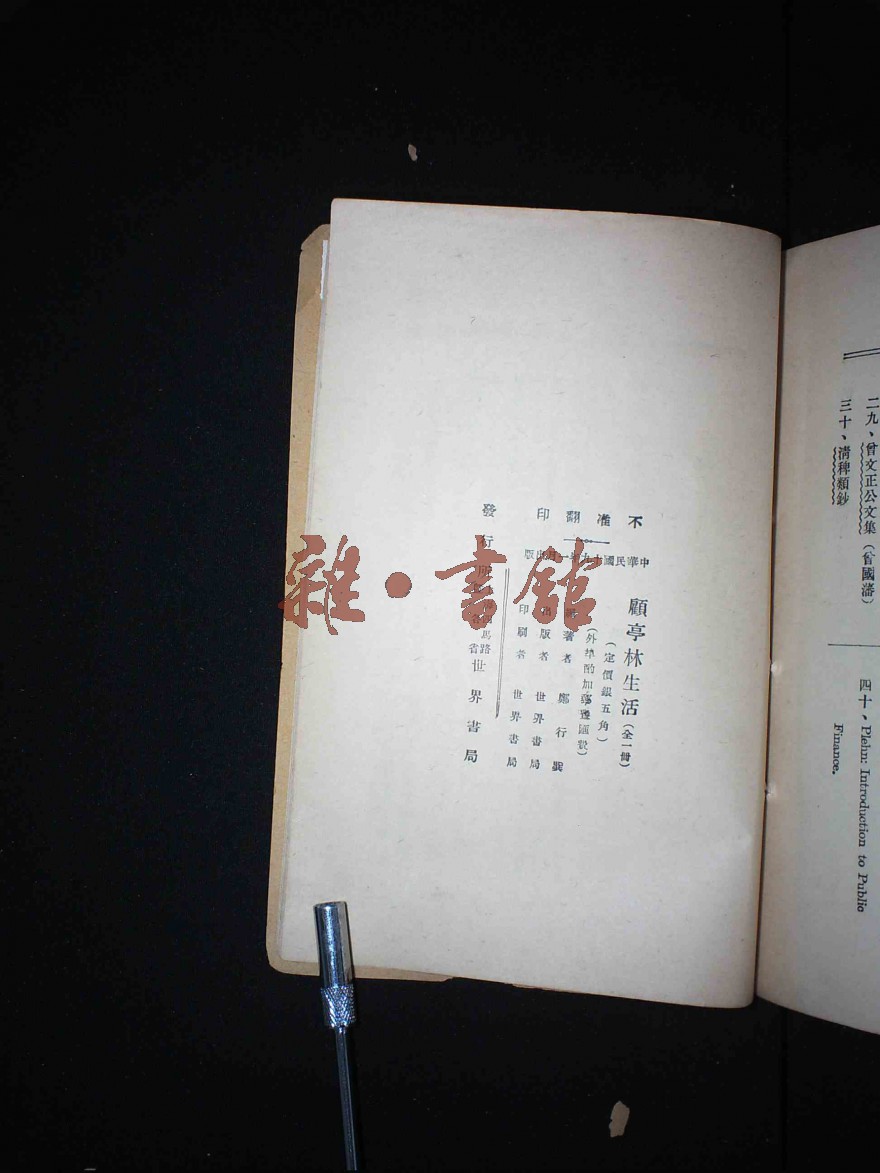 不准翻印
中華民國十九年一月出版
顧亭林生活(全一冊)
(定價銀五角)
(外埠酌加郵匯費)
著者 鄭行巽
出版者 世界書局
印刷者 世界書局
發行所
馬路
省
世界書局
二九、曾文正公文集(曾國藩)
三十、清稗類鈔
四十、Plehn: Introduction to Public
Finance.
雜·書館